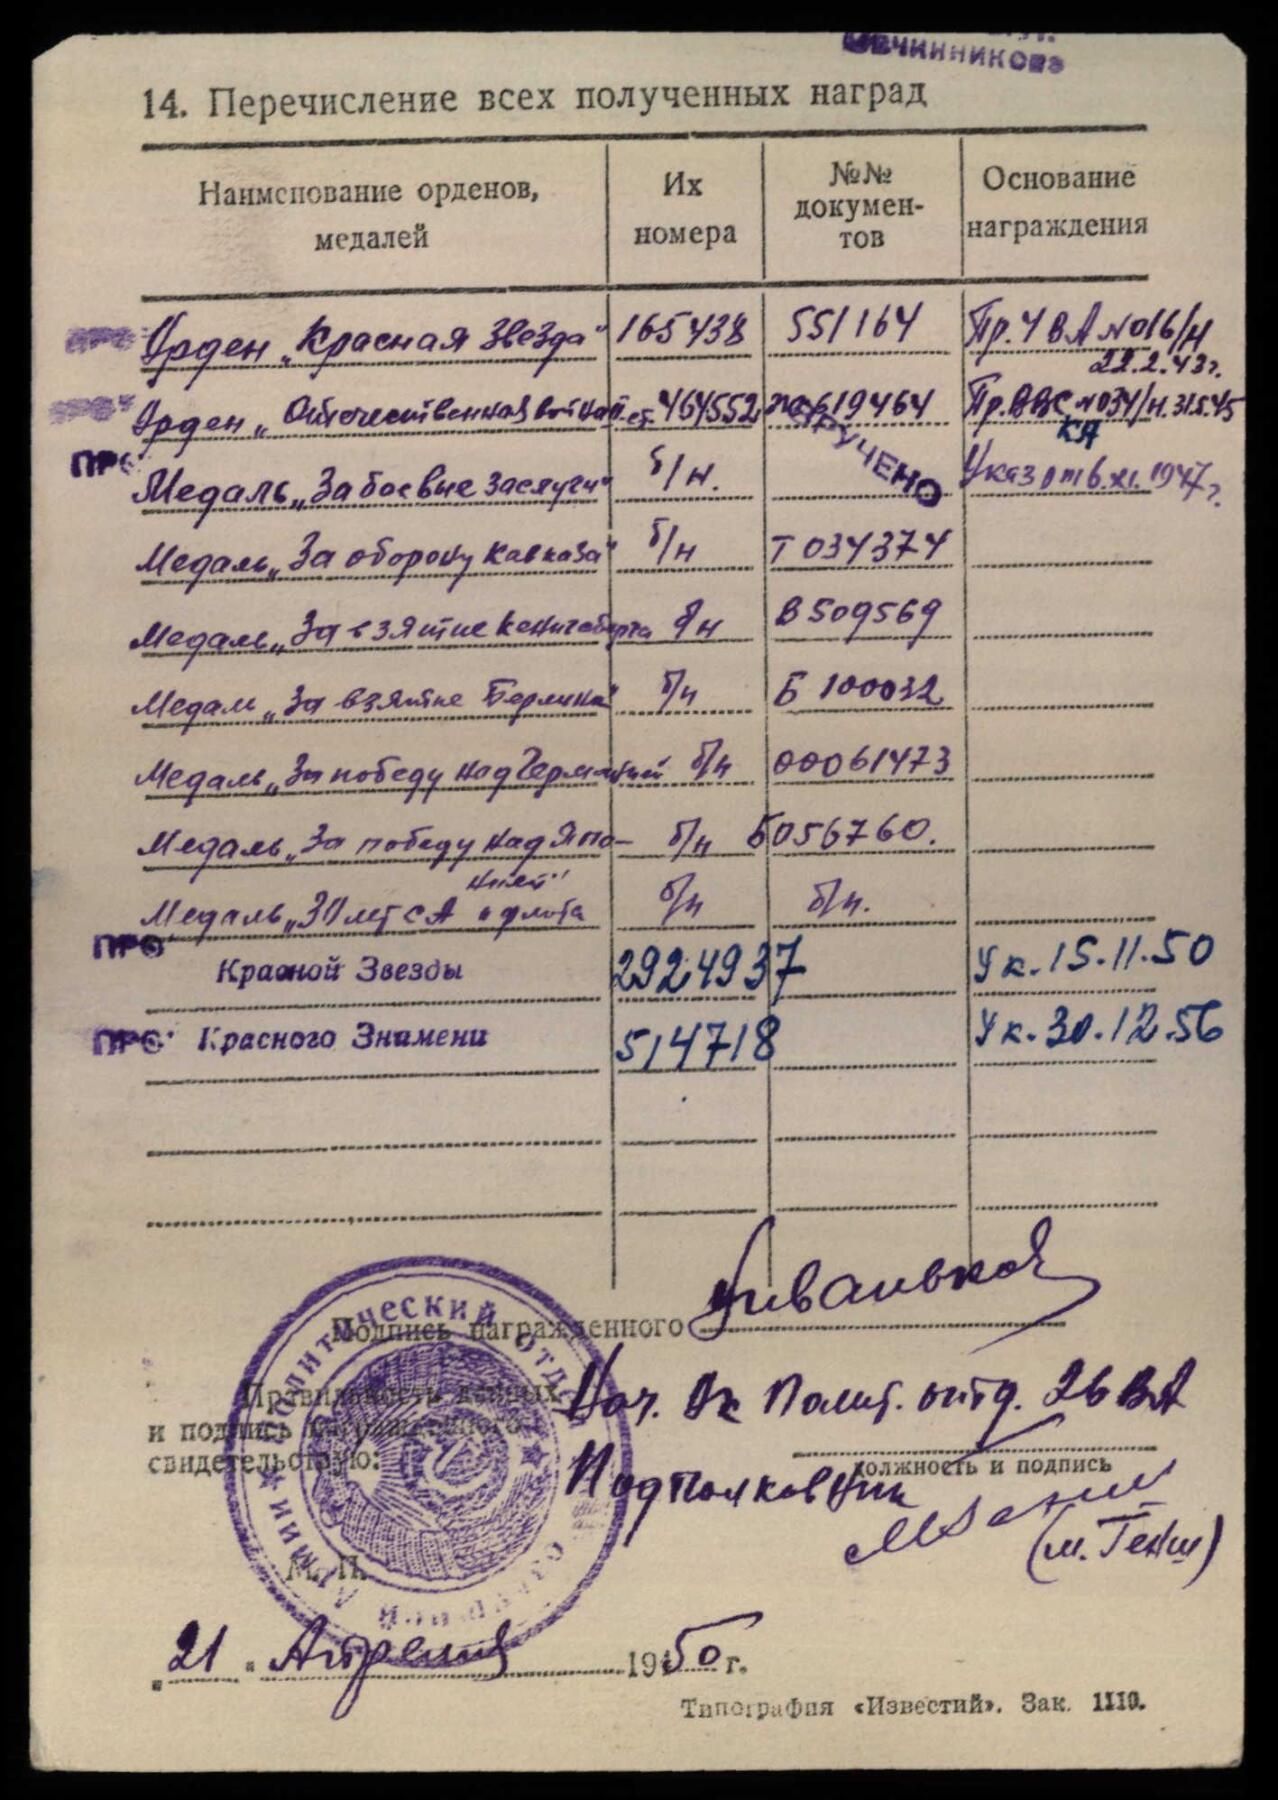 ОВЧИННИКОВЭ
14. Перечисление всех полученных наград
Наименование орденов, медалей
Их номера
№№ докумен-
тов
Основание награждения
Орден „Красная Звезда" 165438 551164 Пр. 4 ВА №016/н
22.2.43г.
Орден „Отечественная война II ст. 464552 619464 Пр. ВВС №034/н. 31.5.45
КА
ВРУЧЕНО
ПРО
Медаль „За боевые заслуги" б/н. Указ от 6.XI.1947г.
Медаль „За оборону Кавказа" б/н Т 034374
Медаль „За взятие Кенигсберга б/н В 509569
Медаль „За взятие Берлина" б/н Б 100032
Медаль „За победу над Германией б/н 00061473
Медаль „За победу над Япо- б/н Б056760.
нией"
Медаль „30 лет СА и флота б/н б/н.
ПРО Красной Звезды 2924937 Ук. 15.11.50
ПРО Красного Знамени 514718 Ук. 30.12.56
Подпись награжденного
Правильность данных
и подпись награжденного
свидетельствую:
Нач. Полит. отд. 26 ВА
должность и подпись
Подполковник
(м. Гениш)
ПОЛИТИЧЕСКИЙ ОТДЕЛ
М. П.
„21" Апреля 1950 г.
Типография «Известий». Зак. 1110.